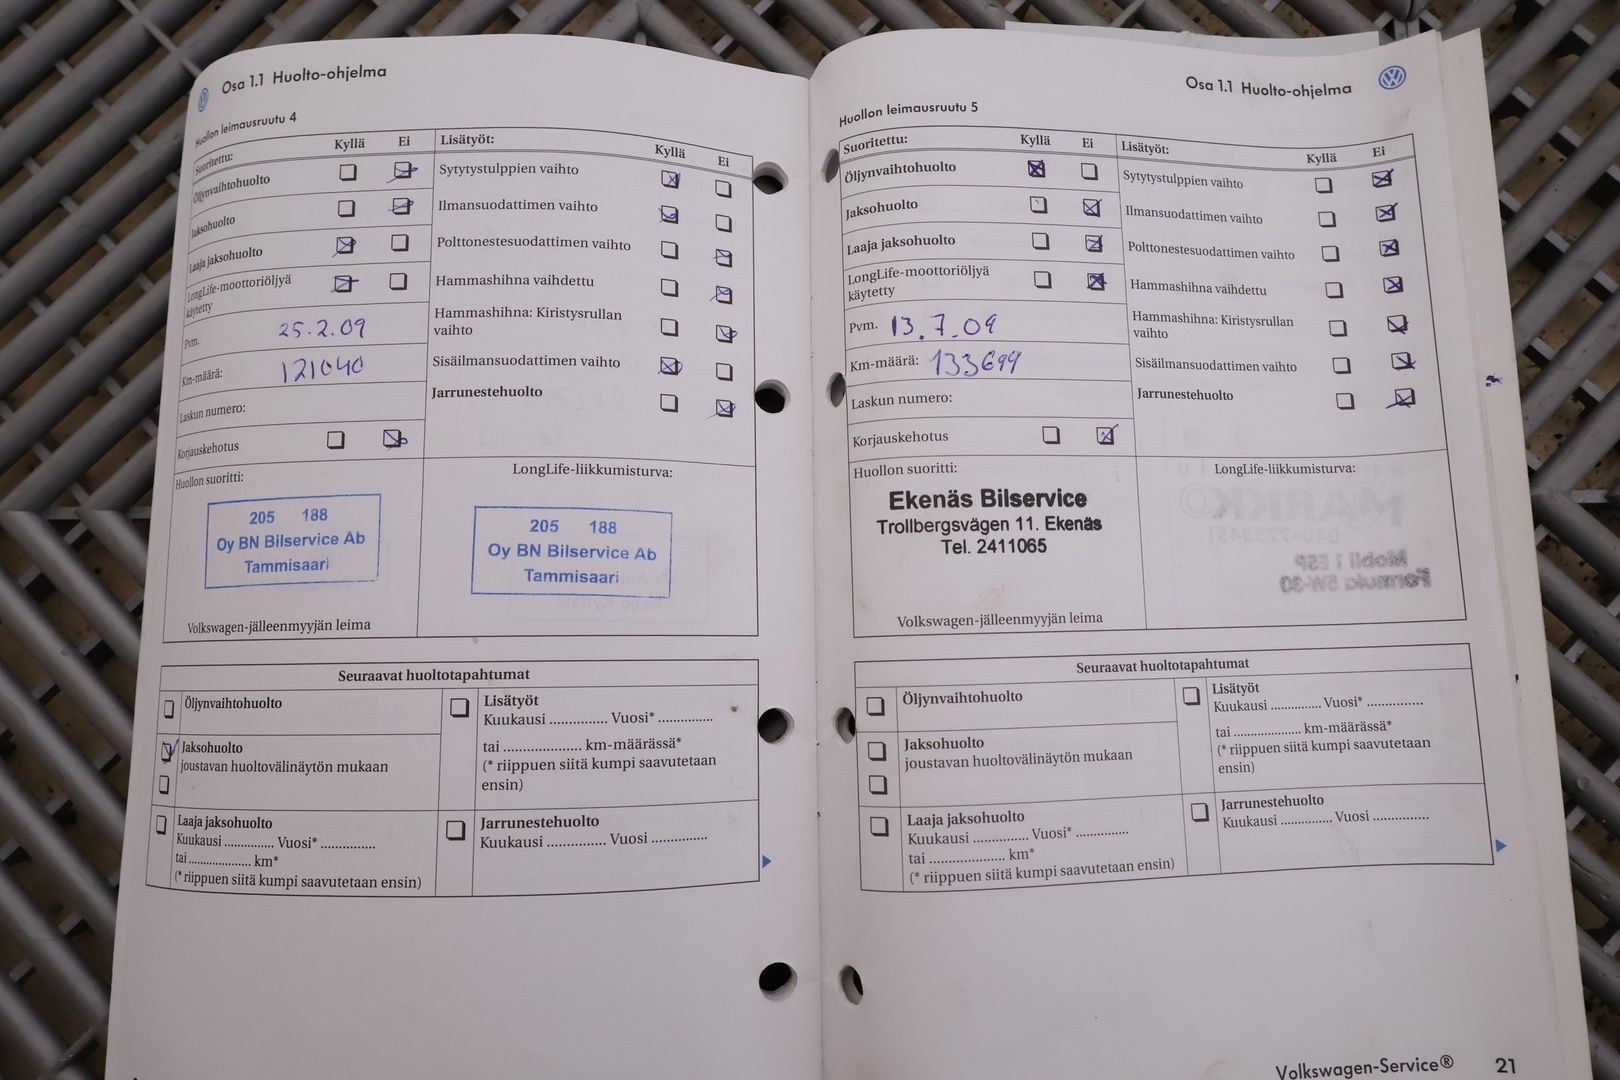 Osa 1.1 Huolto-ohjelma
Huollon leimausruutu 4
Suoritettu: Kyllä Ei
Öljynvaihtohuolto
Jaksohuolto
Laaja jaksohuolto
LongLife-moottoriöljyä
käytetty
Pvm. 25.2.09
Km-määrä: 121040
Laskun numero:
Korjauskehotus
Huollon suoritti:
205 188
Oy BN Bilservice Ab
Tammisaari
Volkswagen-jälleenmyyjän leima
Lisätyöt: Kyllä Ei
Sytytystulppien vaihto
Ilmansuodattimen vaihto
Polttonestesuodattimen vaihto
Hammashihna vaihdettu
Hammashihna: Kiristysrullan
vaihto
Sisäilmansuodattimen vaihto
Jarrunestehuolto
LongLife-liikkumisturva:
205 188
Oy BN Bilservice Ab
Tammisaari
Seuraavat huoltotapahtumat
Öljynvaihtohuolto
Jaksohuolto
joustavan huoltovälinäytön mukaan
Laaja jaksohuolto
Kuukausi .............. Vuosi* ...............
tai ..................... km*
(* riippuen siitä kumpi saavutetaan ensin)
Lisätyöt
Kuukausi ............... Vuosi* ...............
tai ..................... km-määrässä*
(* riippuen siitä kumpi saavutetaan
ensin)
Jarrunestehuolto
Kuukausi ............... Vuosi ...............
Osa 1.1 Huolto-ohjelma
Huollon leimausruutu 5
Suoritettu: Kyllä Ei
Öljynvaihtohuolto
Jaksohuolto
Laaja jaksohuolto
LongLife-moottoriöljyä
käytetty
Pvm. 13.7.09
Km-määrä: 133699
Laskun numero:
Korjauskehotus
Huollon suoritti:
Ekenäs Bilservice
Trollbergsvägen 11. Ekenäs
Tel. 2411065
Volkswagen-jälleenmyyjän leima
Lisätyöt: Kyllä Ei
Sytytystulppien vaihto
Ilmansuodattimen vaihto
Polttonestesuodattimen vaihto
Hammashihna vaihdettu
Hammashihna: Kiristysrullan
vaihto
Sisäilmansuodattimen vaihto
Jarrunestehuolto
LongLife-liikkumisturva:
Seuraavat huoltotapahtumat
Öljynvaihtohuolto
Jaksohuolto
joustavan huoltovälinäytön mukaan
Laaja jaksohuolto
Kuukausi .............. Vuosi* ...............
tai ..................... km*
(* riippuen siitä kumpi saavutetaan ensin)
Lisätyöt
Kuukausi .............. Vuosi* ...............
tai ..................... km-määrässä*
(* riippuen siitä kumpi saavutetaan
ensin)
Jarrunestehuolto
Kuukausi .............. Vuosi ...............
Volkswagen-Service® 21